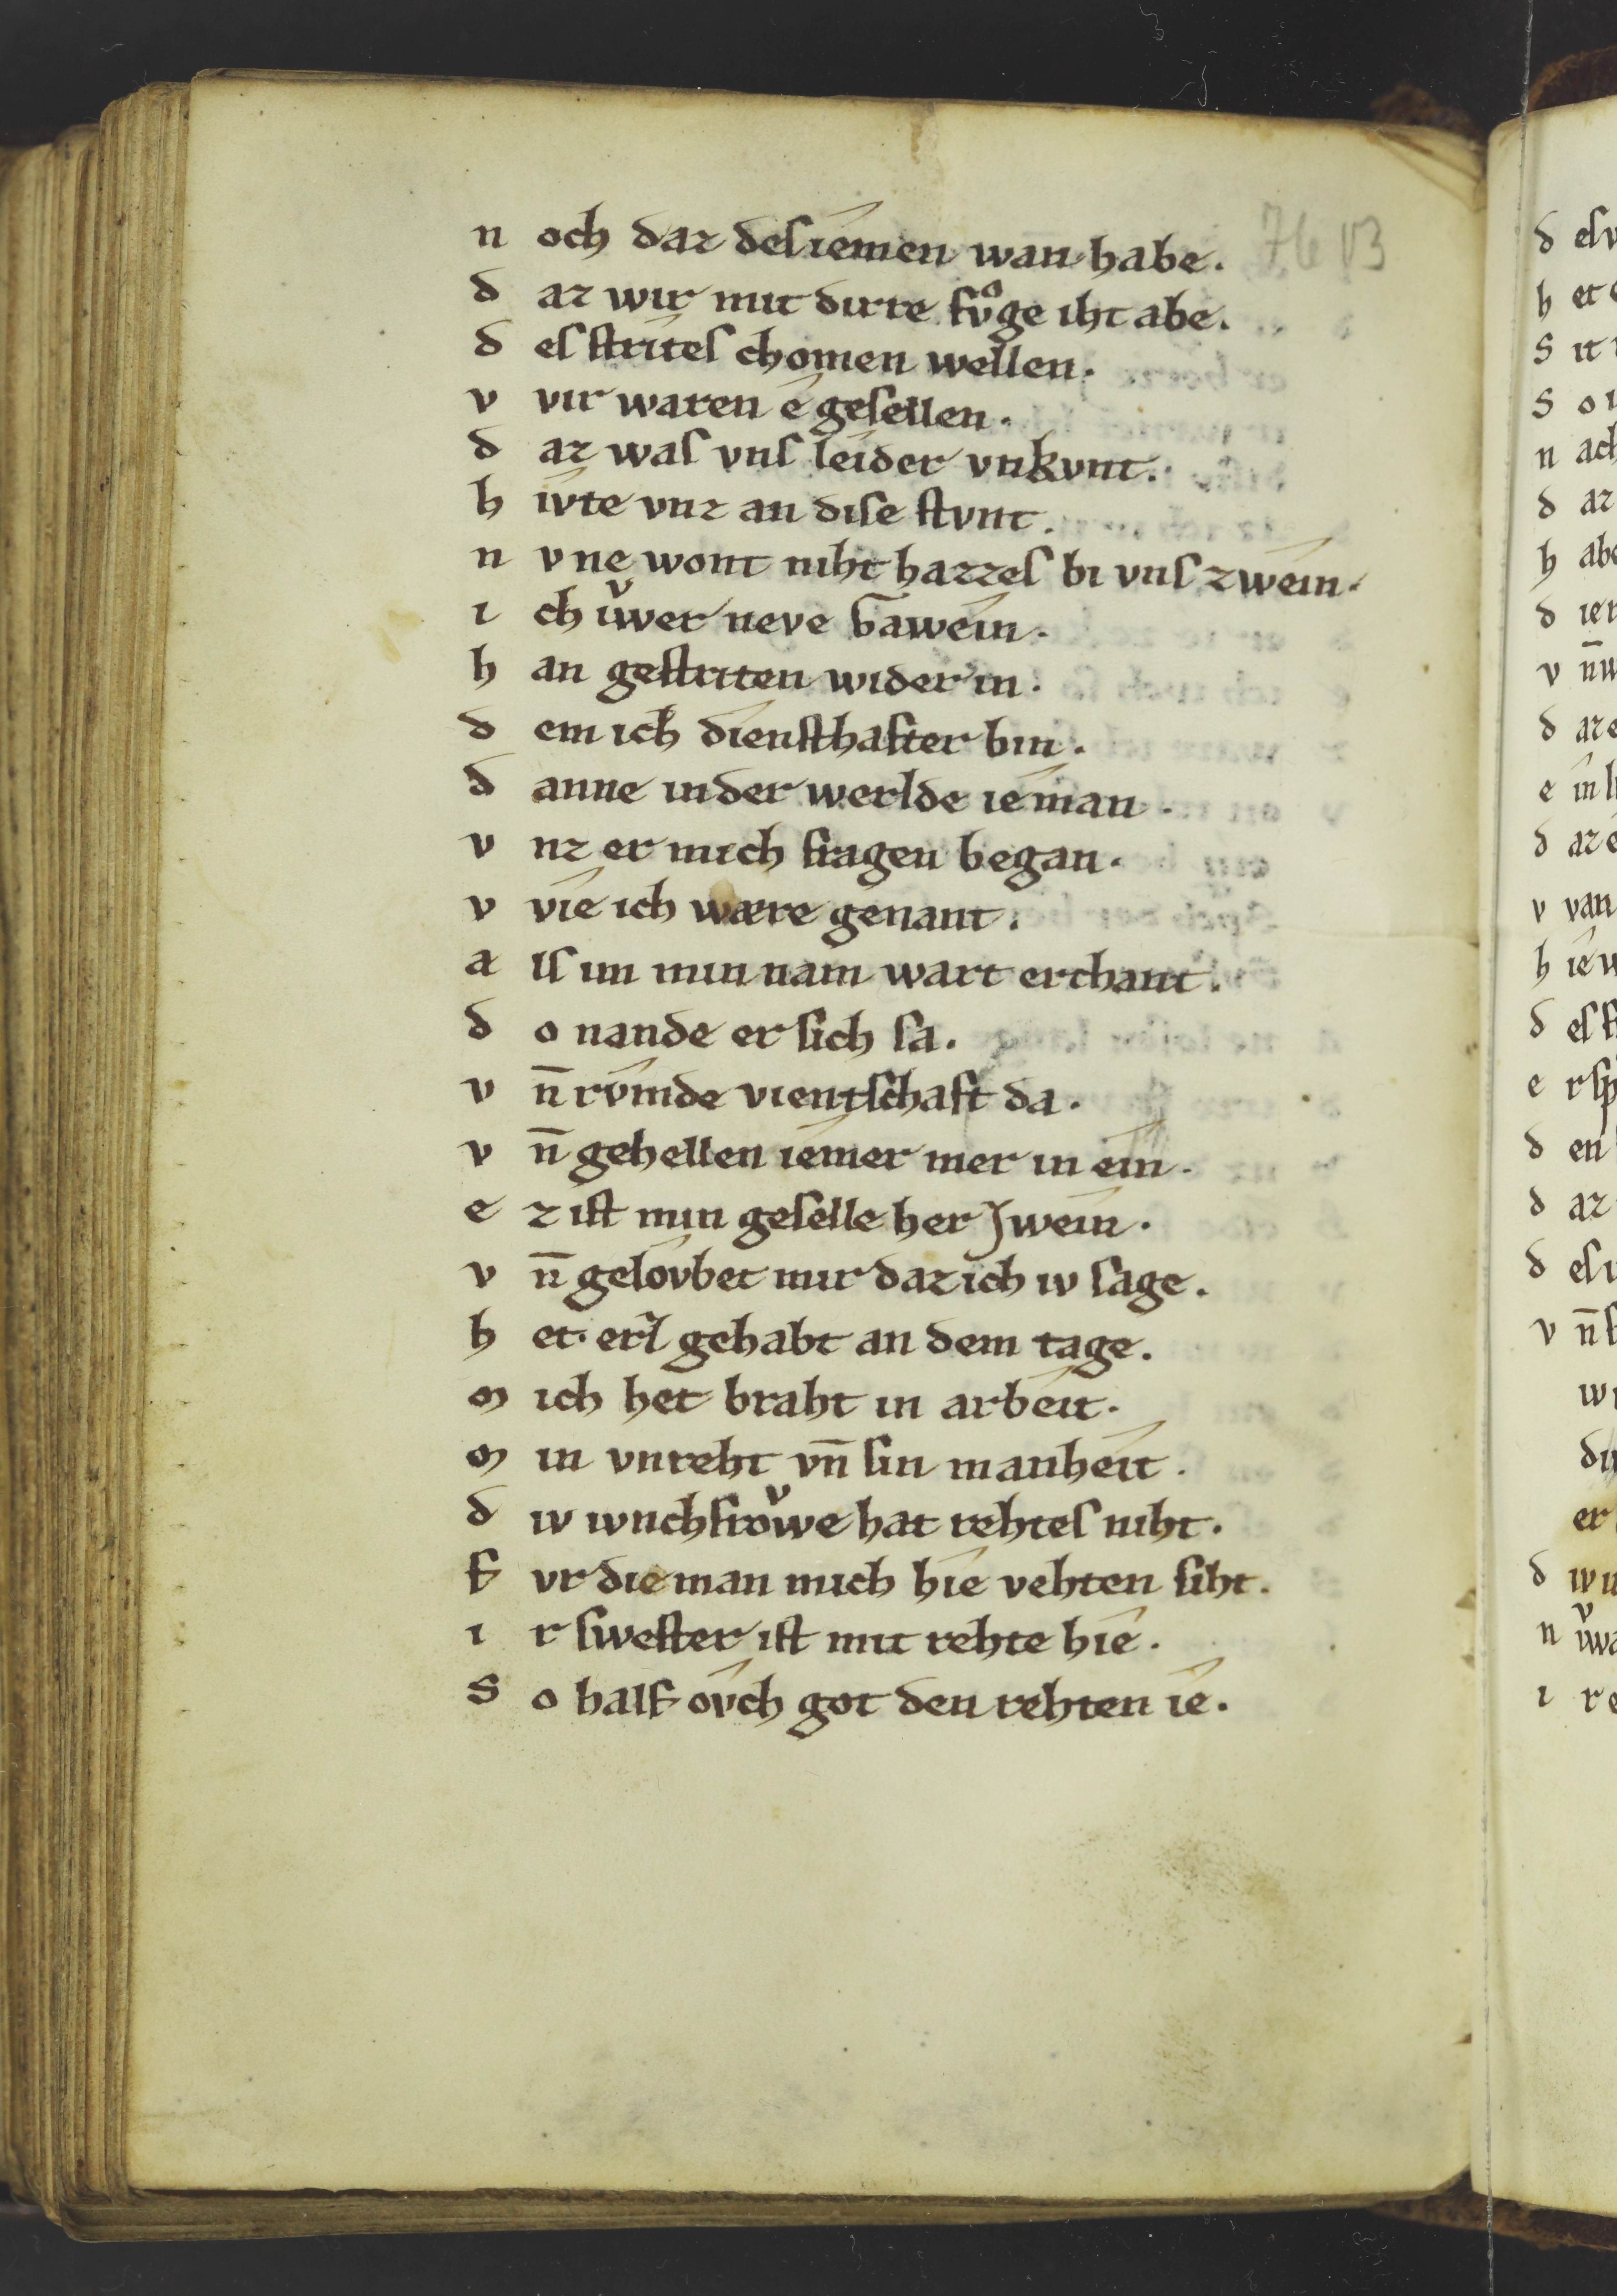 76 v3
n och daz des iêmen wan habe.
d az wir mit dirre fvͦge iht abe.
d es strites chomen wellen.
v vir waren ê gesellen.
d az was vns leider vnkvnt.
h ivte vnz an dise stvnt.
n v ne wont niht hazzes bi vns zwêin.
i ch iͮwer neve Gawêin.
h an gestriten wider in.
d em ich dîensthafter bin.
d anne in der werlde iêman.
v nz er mich fragen began.
v vîe ich wære genant.
a ls im min nam wart erchant.
d o nande er sich sa.
v n̄ rv̂mde vientschaft da.
v n̄ gehellen iêmer mer in êin.
e z ist min geselle her Jwêin.
v n̄ gelôvbet mir daz ich iv sage.
h et erſ gehabt an dem tage.
m ich het braht in arbêit.
m in vnreht vn̄ sin manhêit.
d iv ivnchfroͮwe hat rehtes niht.
f vr die man mich hîe vehten siht.
i r swester ist mit rehte hîe.
S o half ôvch got den rehten îe.
d es
h et
S it
S o
n ach
d az
h abe
d ie
v n̄
d az
e in
d az
v van
h îe
d es
e r sp
d en
d az
d es
v n̄
wi
er
d iv
n
i r